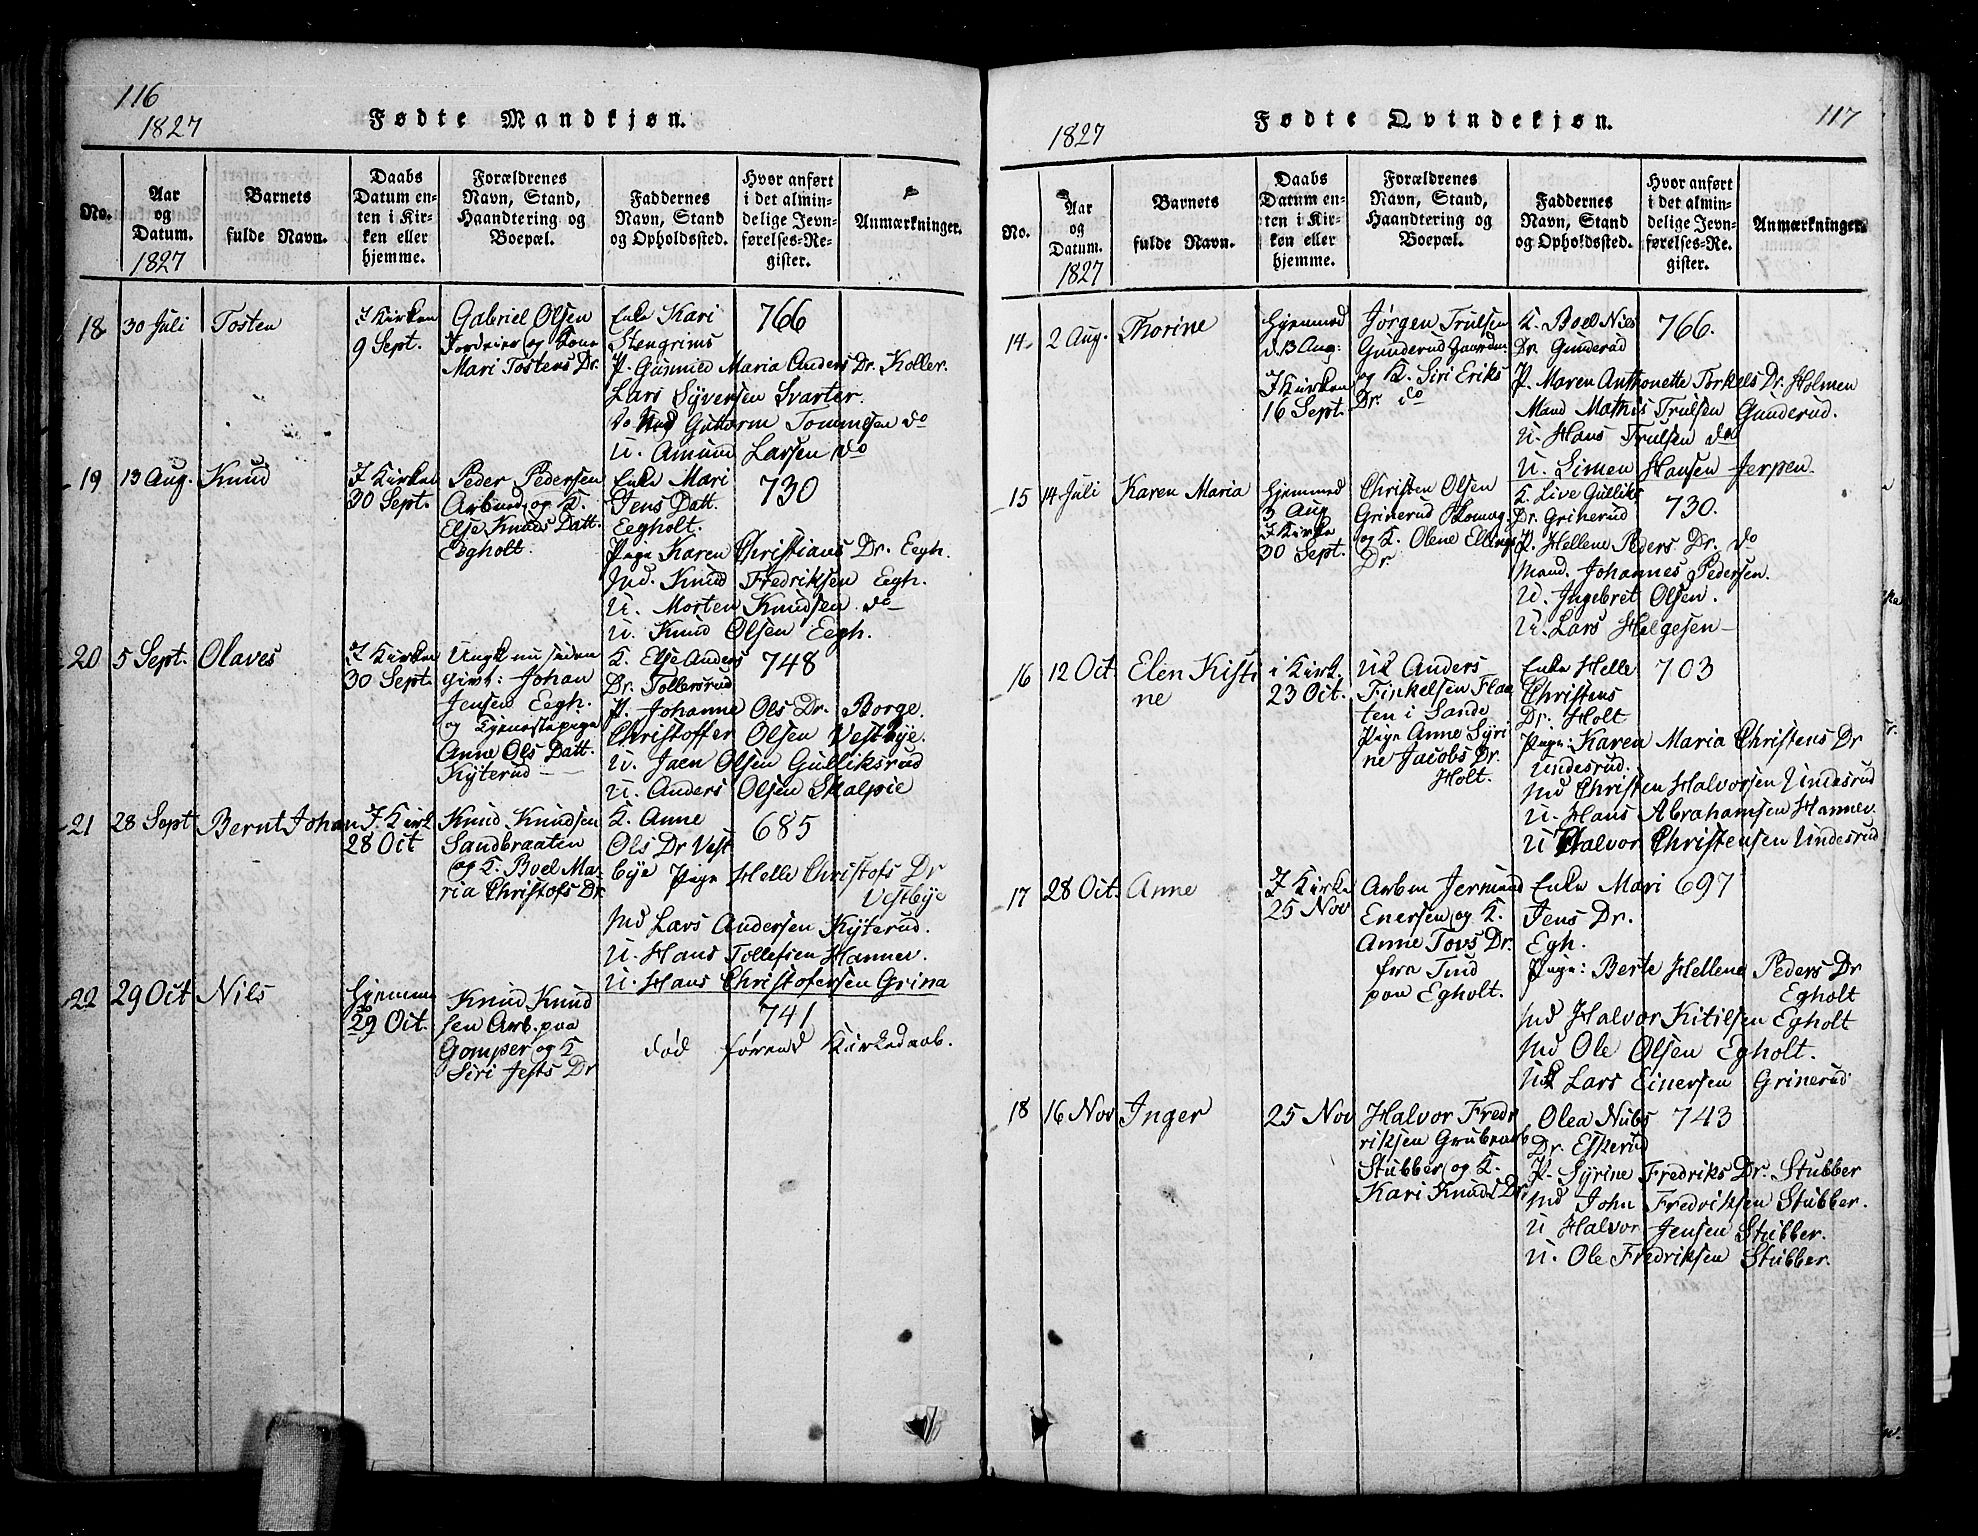 116
1827
Fødte Mandkjøn.
No.
Aar
og
Datum.
1827
Barnets
fulde Navn.
Daabs
Datum en-
ten i Kir-
ken eller
hjemme.
Forældrenes
Navn, Stand,
Haandtering og
Boepæl.
Faddernes
Navn, Stand
og Opholdssted.
Hvor anført
i det almin-
delige Jevn-
førelses-Re-
gister.
Anmærkninger.
18 30 Juli Tosten
I Kirken
9 Sept.
Gabriel Olsen
og Kone
Mari Tostens Dr.
Enke Kari
Stengrims
766
P. Gunnild Maria Anders Dr. Koller.
Lars Syversen Svarter.
Guttorm Tommesen do
U. Amund Larsen do
19 13 Aug. Knud
I Kirken
30 Sept.
Peder Pedersen
og K.
Else Knuds Datt.
Egholt.
Enke Mari
Jens Datt.
Eegholt.
730
Pige Karen Christians Dr. Eegh.
Md. Knud Fredriksen Eegh.
U. Morten Knudsen do
U. Knud Olsen Eegh.
20 5 Sept. Olaves
I Kirken
30 Sept.
Ungk nu siden
givt: Johan
Jensen Eegh.
og Tjenestepige
Anne Ols Datt.
Kyterud
K. Else Anders
Dr. Tollersrud
748
P. Johanne Ols Dr. Borge.
Christoffer Olsen Vestbye.
U. Jaen Olsen Gulliksrud
U. Anders Olsen Skalpie
21 28 Sept Bernt Johan
I Kirk
28 Oct
Knud Knudsen
Sandbraaten
og K. Boel Ma-
ria Christofs Dr
K. Anne
Ols Dr Vest
685
bye Pige Helle Christofs Dr
Vestbye
Md Lars Andersen Kyterud.
U. Hans Tollefsen Hannev.
U. Hans Christofersen Grina
22 29 Oct Nils
Hjemme
do
29 Oct.
Knud Knud
sen Arb. paa
Gomper og K
Siri Jests Dr
741
død førend Kirkedaab.
117
1827
Fødte Qvindekjøn.
No.
Aar
og
Datum.
1827
Barnets
fulde Navn.
Daabs
Datum en-
ten i Kir-
ken eller
hjemme.
Forældrenes
Navn, Stand,
Haandtering og
Boepæl.
Faddernes
Navn, Stand
og Opholdssted.
Hvor anført
i det almin-
delige Jevn-
førelses-Re-
gister.
Anmærkninger.
14 2 Aug. Thorine
Hjemmed
d. 13 Aug:
I Kirken
16 Sept.
Jørgen Trulsen
Gunderud
og K. Siri Eriks
Dr. do
K. Boel Nils
Dr. Gunderud
766.
P. Maren Anthonette Torkels Dr. Holmen
Mand Mathis Trulsen Gunderud.
U. Hans Trulsen do
U. Simen Hansen Jerpen.
15 14 Juli Karen Maria
Hjemmed
3 Aug
I Kirke
30 Sept.
Christen Olsen
Grinerud
og K. Olene Ellings
Dr.
K. Live Gulliks
Dr. Grinerud
730.
P. Hellene Peders Dr. do
Mand. Johannes Pedersen.
U. Ingebret Olsen.
U. Lars Helgesen
16 12 Oct Elen Kisti
ne
i Kirk.
23 Oct.
Uk Anders
Finkelsen Flaa
ten i Sande
Pige Anne Syri
ne Jacobs Dr.
Holt.
Enke Helle
Christens
Dr. Holt
703
Pige: Karen Maria Christens Dr
Undesrud.
Md Christen Halvorsen Undesrud
U. Hans Abrahamsen Hannev.
U Halvor Christensen Undesrud
17 28 Oct. Anne
I Kirke
25 Nov
Arbm Jermund
Enersen og K.
Anne Tovs Dr.
fra Tind
paa Egholt.
Enke Mari
Jens Dr.
Egh.
697
Pige: Berte Hellene Peders Dr
Egholt
Md Halvor Kitilsen Egholt
Md Ole Olsen Egholt.
Lars Einersen Grinerud
18 16 Nov Inger
25 Nov
Halvor Fred
riksen Grubearb
Stubber og K.
Kari Knuds Dr
Olea Nubs
Dr. Eskerud
743
P. Syrine Fredriks Dr. Stubber
Md John Fredriksen Stubber.
U Halvor Jensen Stubber.
U. Ole Fredriksen Stubber.